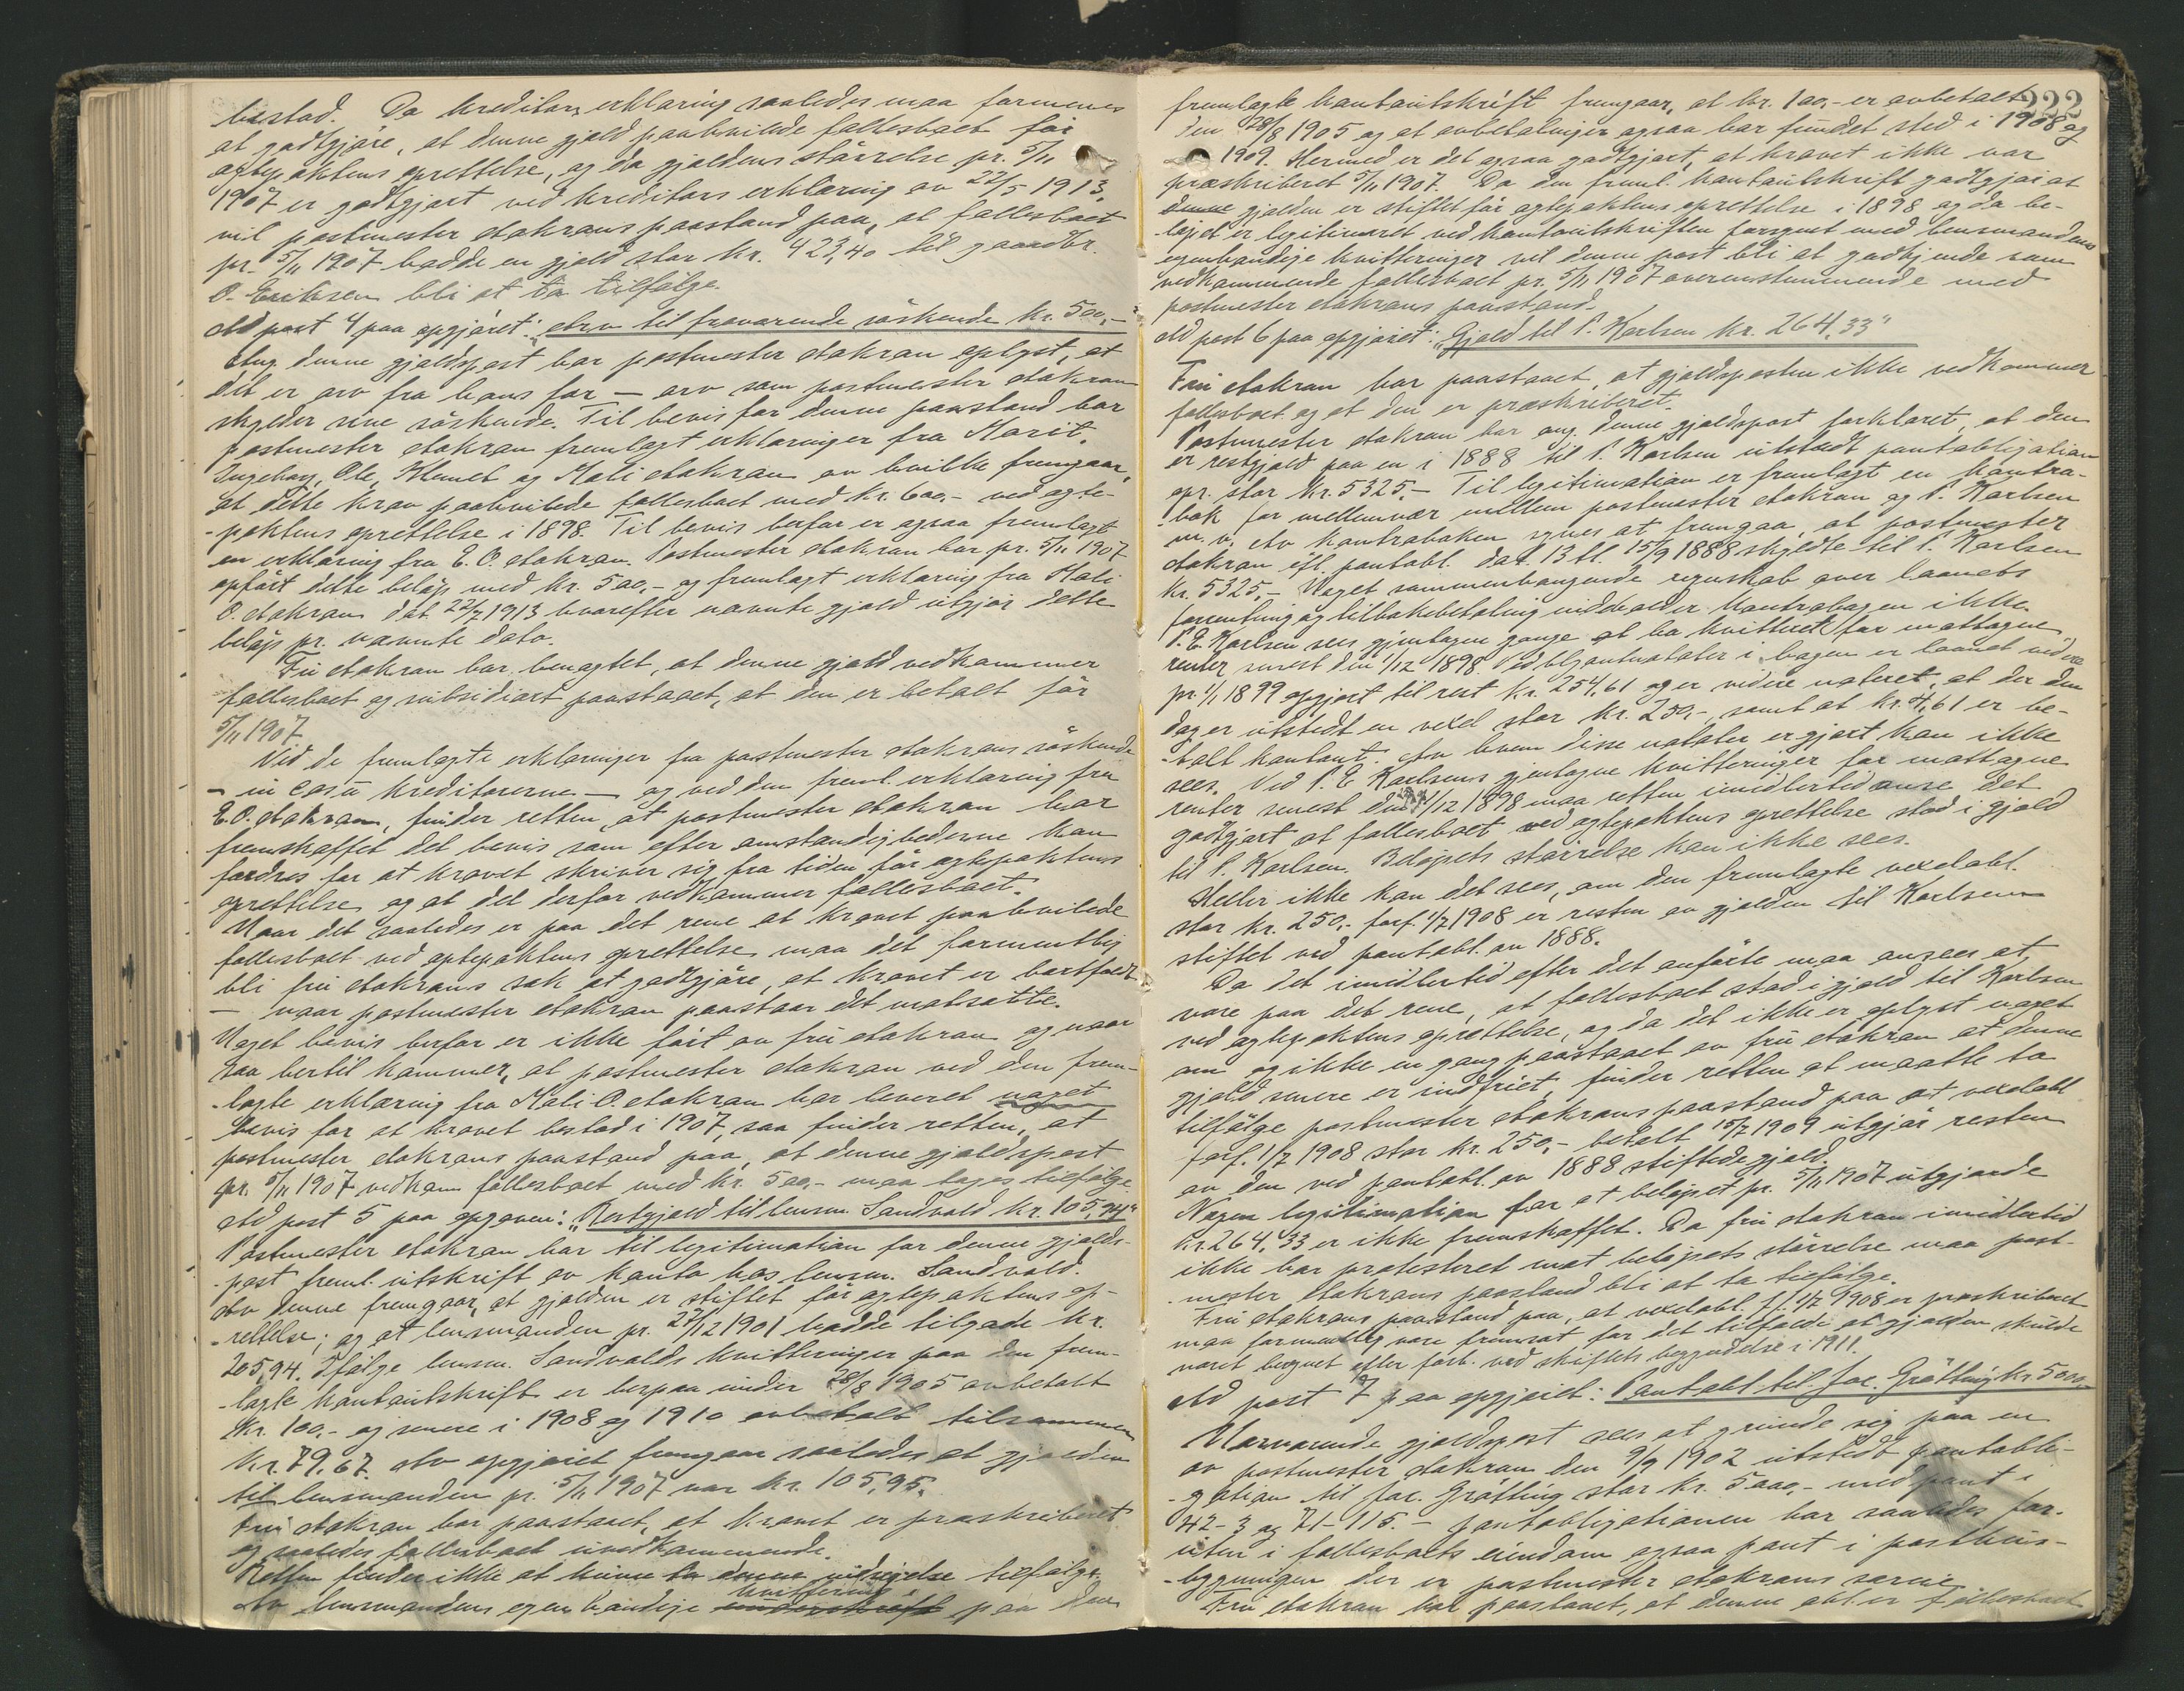 bestod. Da kreditors erklæring saaledes maa formenes
at godtgjøre, at denne gjæld paahvilede fællesboet før
ægtepaktens oprettelse, og da gjældens størrelse pr. 5/11
1907 er godtgjort ved kreditors erklæring av 22/5 1913,
vil postmester Aakrans paastand paa, at fællesboet
pr. 5/11 1907 hadde en gjæld stor kr. 423,40 til gaardbr.
O. Eriksen bli at ta tilfølge.
Ad post 4 paa opgjøret: „Arv til fraværende søskende kr. 500,-"
Ang. denne gjældspost har postmester Aakran oplyst, at
det er arv fra hans far — arv som postmester Aakran
skylder sine søskende. Til bevis for denne paastand har
postmester Aakran fremlagt erklæringer fra Marit,
Ingeborg, Ole, Klemet og Mali Aakran av hvilke fremgaar,
at dette krav paahvilede fællesboet med kr. 600,- ved ægte-
-paktens oprettelse i 1898. Til bevis herfor er ogsaa fremlagt
en erklæring fra E. O. Aakran. Postmester Aakran har pr. 5/11 1907
opført dette beløp med kr. 500,- og fremlagt erklæring fra Mali
O. Aakran dat 22/7 1913 hvorefter nævnte gjæld utgjør dette
beløp pr. nævnte dato.
Fru Aakran har benægtet, at denne gjæld vedkommer
fællesboet og subsidiært paastaaet, at den er betalt før
5/11 1907.
Ved de fremlagte erklæringer fra postmester Aakrans søskende
— in casu kreditorerne — og ved den freml. erklæring fra
E. O. Aakran, finder retten, at postmester Aakran har
fremskaffet det bevis som efter omstændighederne kan
fordres for at kravet skriver sig fra tiden før ægtepaktens
oprettelse og at det derfor vedkommer fællesboet.
Naar det saaledes er paa det rene at kravet paahvilede
fællesboet ved ægtepaktens oprettelse maa det formentlig
bli fru Aakrans sak at godtgjøre, at kravet er bortfaldt
— naar postmester Aakran paastaar det motsatte.
Noget bevis herfor er ikke ført av fru Aakran og naar
saa hertil kommer, at postmester Aakran ved den frem-
-lagte erklæring fra Mali O. Aakran har leveret noget
bevis for at kravet bestod i 1907, saa finder retten, at
postmester Aakrans paastand paa, at denne gjældspost
pr. 5/11 1907 vedkom fællesboet med kr. 500,- maa tages tilfølge.
Ad post 5 paa opgaven: „Restgjæld til lensm. Sandvold kr. 105,94"
Postmester Aakran har til legitimation for denne gjælds-
-post freml. utskrift av konto hos lensm. Sandvold.
Av denne fremgaar, at gjælden er stiftet før ægtepaktens op-
-rettelse; og at lensmanden pr. 27/12 1901 hadde tilgode kr.
205,94. Ifølge lensm. Sandvolds kvitteringer paa den frem-
-lagte kontoutskrift er herpaa under 28/8 1905 avbetalt
kr. 100,- og senere i 1908 og 1910 avbetalt tilsammen
kr. 79,67. Av opgjøret fremgaar saaledes at gjælden
til lensmanden pr. 5/11 1907 var kr. 105,95.
Fru Aakran har paastaaet, at kravet er præskriberet
og saaledes fællesboet uvedkommende.
Retten finder ikke at kunne ta denne indsigelse tilfølge.
Av lensmandens egenhændige kvittering paa den
222
fremlagte kontoutskrift fremgaar, at kr. 100,- er avbetalt
den 28/8 1905 og at avbetalinger ogsaa har fundet sted i 1908 og
1909. Hermed er det ogsaa godtgjort, at kravet ikke var
præskriberet 5/11 1907. Da den freml. kontoutskrift godtgjør at
denne gjælden er stiftet før ægtepaktens oprettelse i 1898 og da be-
-løpet er legitimeret ved kontoutskriften forsynet med lensmandens
egenhændige kvitteringer vil denne post bli at godkjende som
vedkommende fællesboet pr. 5/11 1907 overensstemmende med
postmester Aakrans paastand.
Ad post 6 paa opgjøret: „Gjæld til P. Karlsen kr. 264,33"
Fru Aakran har paastaaet, at gjældsposten ikke vedkommer
fællesboet og at den er præskriberet.
Postmester Aakran har ang. denne gjældspost forklaret, at den
er restgjæld paa en i 1888 til P. Karlsen utstedt pantobligation
opr. stor kr. 5325,- Til legitimation er fremlagt en kontra-
-bok for mellemvær mellem postmester Aakran og P. Karlsen
m. v. Av kontraboken synes at fremgaa, at postmester
Aakran ifl. pantobl. dat. 13 tl. 15/9 1888 skyldte til P. Karlsen
kr. 5325,- Noget sammenhængende regnskab over laanets
forrentning og tilbakebetaling indeholder kontrabogen ikke.
P. E. Karlsen sees gjentagne gange at ha kvitteret for mottagne
renter senest den 1/12 1898. Ved blyantnotater i bogen er laanet videre
pr. 1/1 1899 opgjort til rest kr. 254,61 og er videre noteret, at der den
dag er utstedt en vexel stor kr. 250,-, samt at kr. 4,61 er be-
-talt kontant. Av hvem disse notater er gjort kan ikke
sees. Ved P. E. Karlsens gjentagne kvitteringer for mottagne
renter senest den 1/12 1898 maa retten imidlertid anse det
godtgjort at fællesboet ved ægtepaktens oprettelse stod i gjæld
til P. Karlsen. Beløpets størrelse kan ikke sees.
Heller ikke kan det sees, om den fremlagte vexelobl.
stor kr. 250,- forf. 1/7 1908 er resten av gjælden til Karlsen
stiftet ved pantobl. av 1888.
Da det imidlertid efter det anførte maa ansees at
være paa det rene, at fællesboet stod i gjæld til Karlsen
ved ægtepaktens oprettelse, og da det ikke er oplyst noget
om og ikke engang paastaaet av fru Aakran at denne
gjæld senere er indfriet finder retten at maatte ta
tilfølge postmester Aakrans paastand paa at vexelobl
forf. 1/7 1908 stor kr. 250,- betalt 15/7 1909 utgjør resten
av den ved pantobl. av 1888 stiftede gjæld.
Nogen legitimation for at beløpet pr. 5/11 1907 utgjorde
kr. 264,33 er ikke fremskaffet. Da fru Aakran imidlertid
ikke har protesteret mot beløpets størrelse maa post-
-mester Aakrans paastand bli at ta tilfølge.
Fru Aakrans paastand paa, at vexelobl. f. 1/7 1908 er præskriberet
maa formentlig være fremsat for det tilfælde at gjælden skulde
været beregnet efter forh. ved skiftets begyndelse i 1911.
Ad post 7 paa opgjøret: Pantobl. til Jac. Grøtting kr. 5000,-
Nærværende gjældspost sees at grunde sig paa en
av postmester Aakran den 9/9 1902 utstedt pantobli-
-gation til Jac. Grøtting stor kr. 5000,- med pant i
42-3 og 71-115.- Pantobligationen har saaledes for-
uten i fællesboets eiendom ogsaa pant i posthus-
-bygningen der er postmester Aakrans særeie.
Fru Aakran har paastaaet, at denne obl. er fællesboet